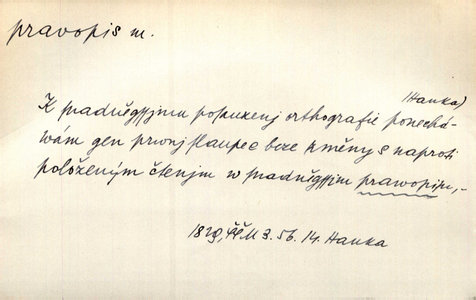 pravopis m.
(Hanka)
K snadněgssjmu posauzenj orthografie ponechá-
wám gen prwnj slaupec beze změny s naproti
položeným čtenjm w snadněgssjm prawopisu,-
1829, ČČM 3. 56. 14. Hanka